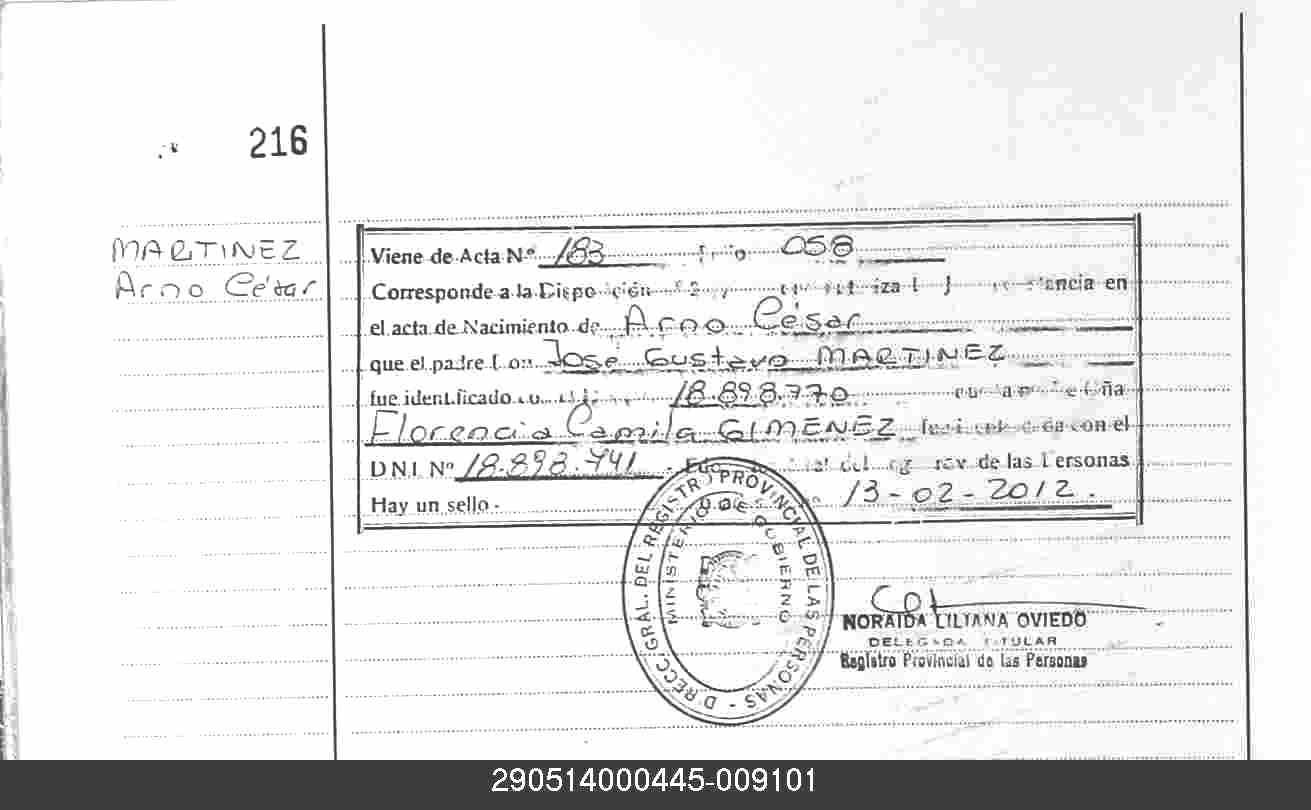 216
MARTINEZ
Arno César
Viene de Acta Nº 183 058
Corresponde a la en
el acta de Nacimiento de Arno César
que el padre José Gustavo MARTINEZ
fue identificado 18.898.770
Florencia Camila GIMENEZ con el
DNI Nº 18.898.441 de las Personas
Hay un sello. 13-02-2012.
RECC. GRAL. DEL REGISTRO PROVINCIAL DE LAS PERSONAS
MINISTERIO DE GOBIERNO
NORAIDA LILIANA OVIEDO
DELEGADA TITULAR
Registro Provincial de las Personas
290514000445-009101